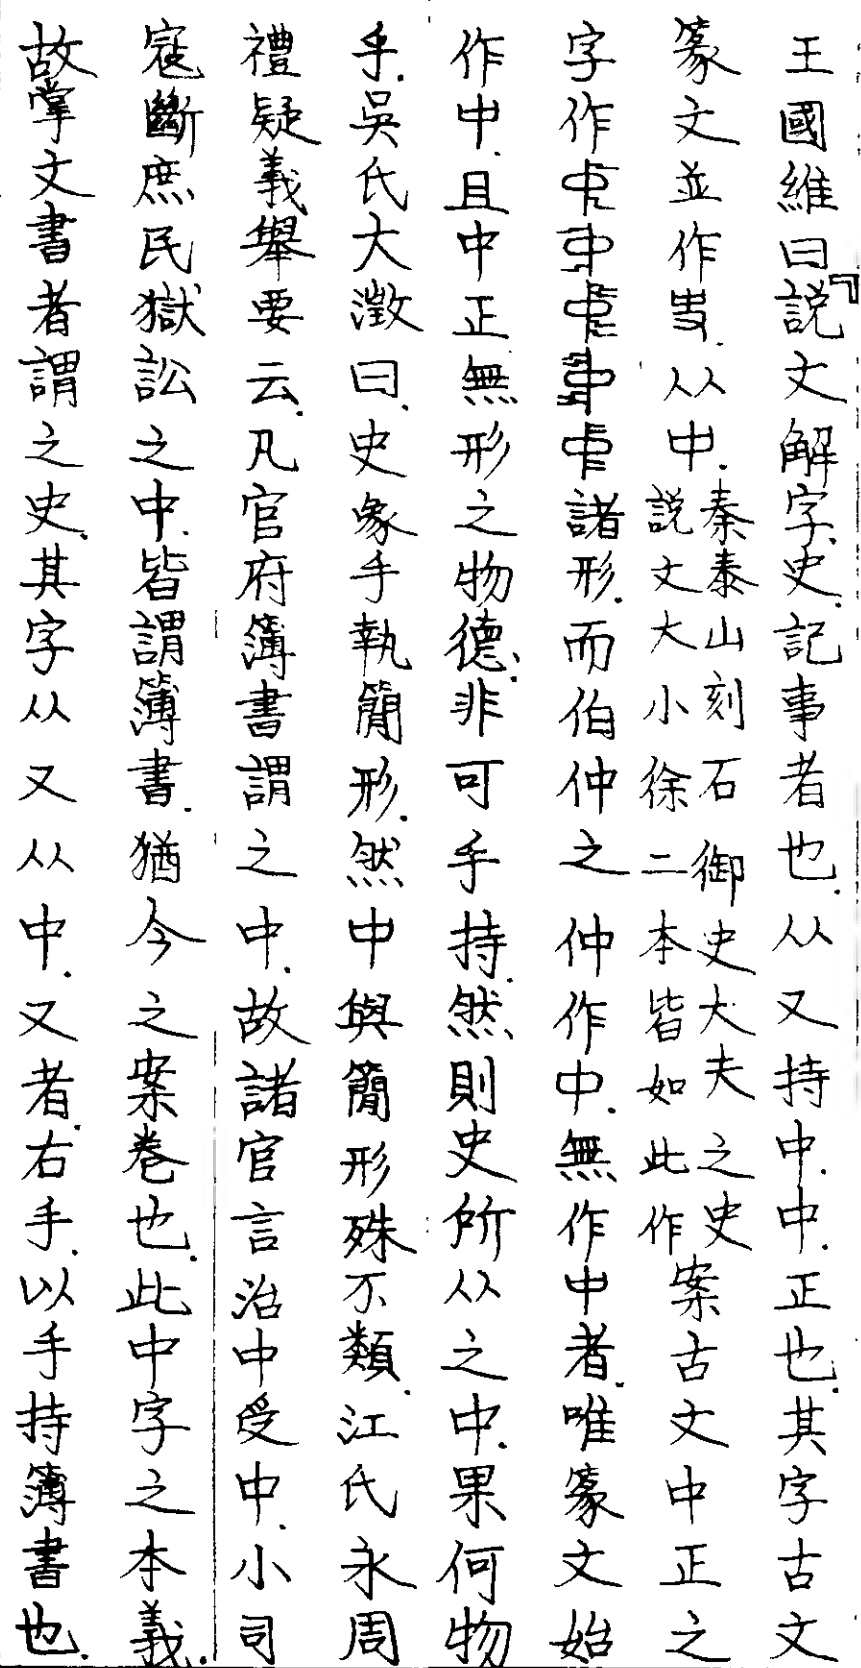 王國維曰『說文解字.史.記事者也.从又持中.中.正也.其字古文
篆文並作㕜.从中.秦泰山刻石御史大夫之史說文大小徐二本皆如此作案古文中正之
字作諸形.而伯仲之仲作中.無作中者.唯篆文始
作中.且中正無形之物德.非可手持.然則史所从之中.果何物
乎.吳氏大澂曰.史象手執簡形.然中與簡形殊不類.江氏永周
禮疑義舉要云.凡官府簿書謂之中.故諸官言治中受中.小司
寇斷庶民獄訟之中.皆謂簿書.猶今之案卷也.此中字之本義.
故掌文書者謂之史.其字从又从中.又者.右手.以手持簿書也.